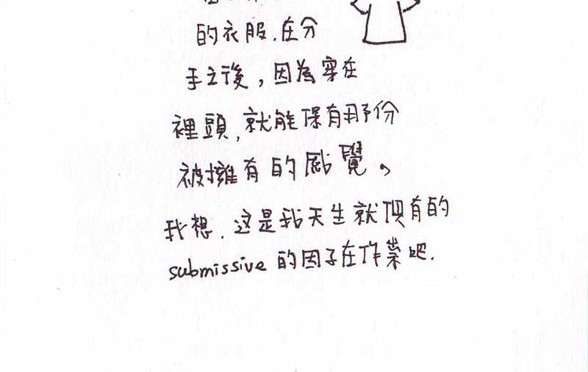 的衣服.在分
手之後，因為穿在
裡頭,就能保有那份
被擁有的感覺。
我想.这是我天生就俱有的
submissive 的因子在作業吧.